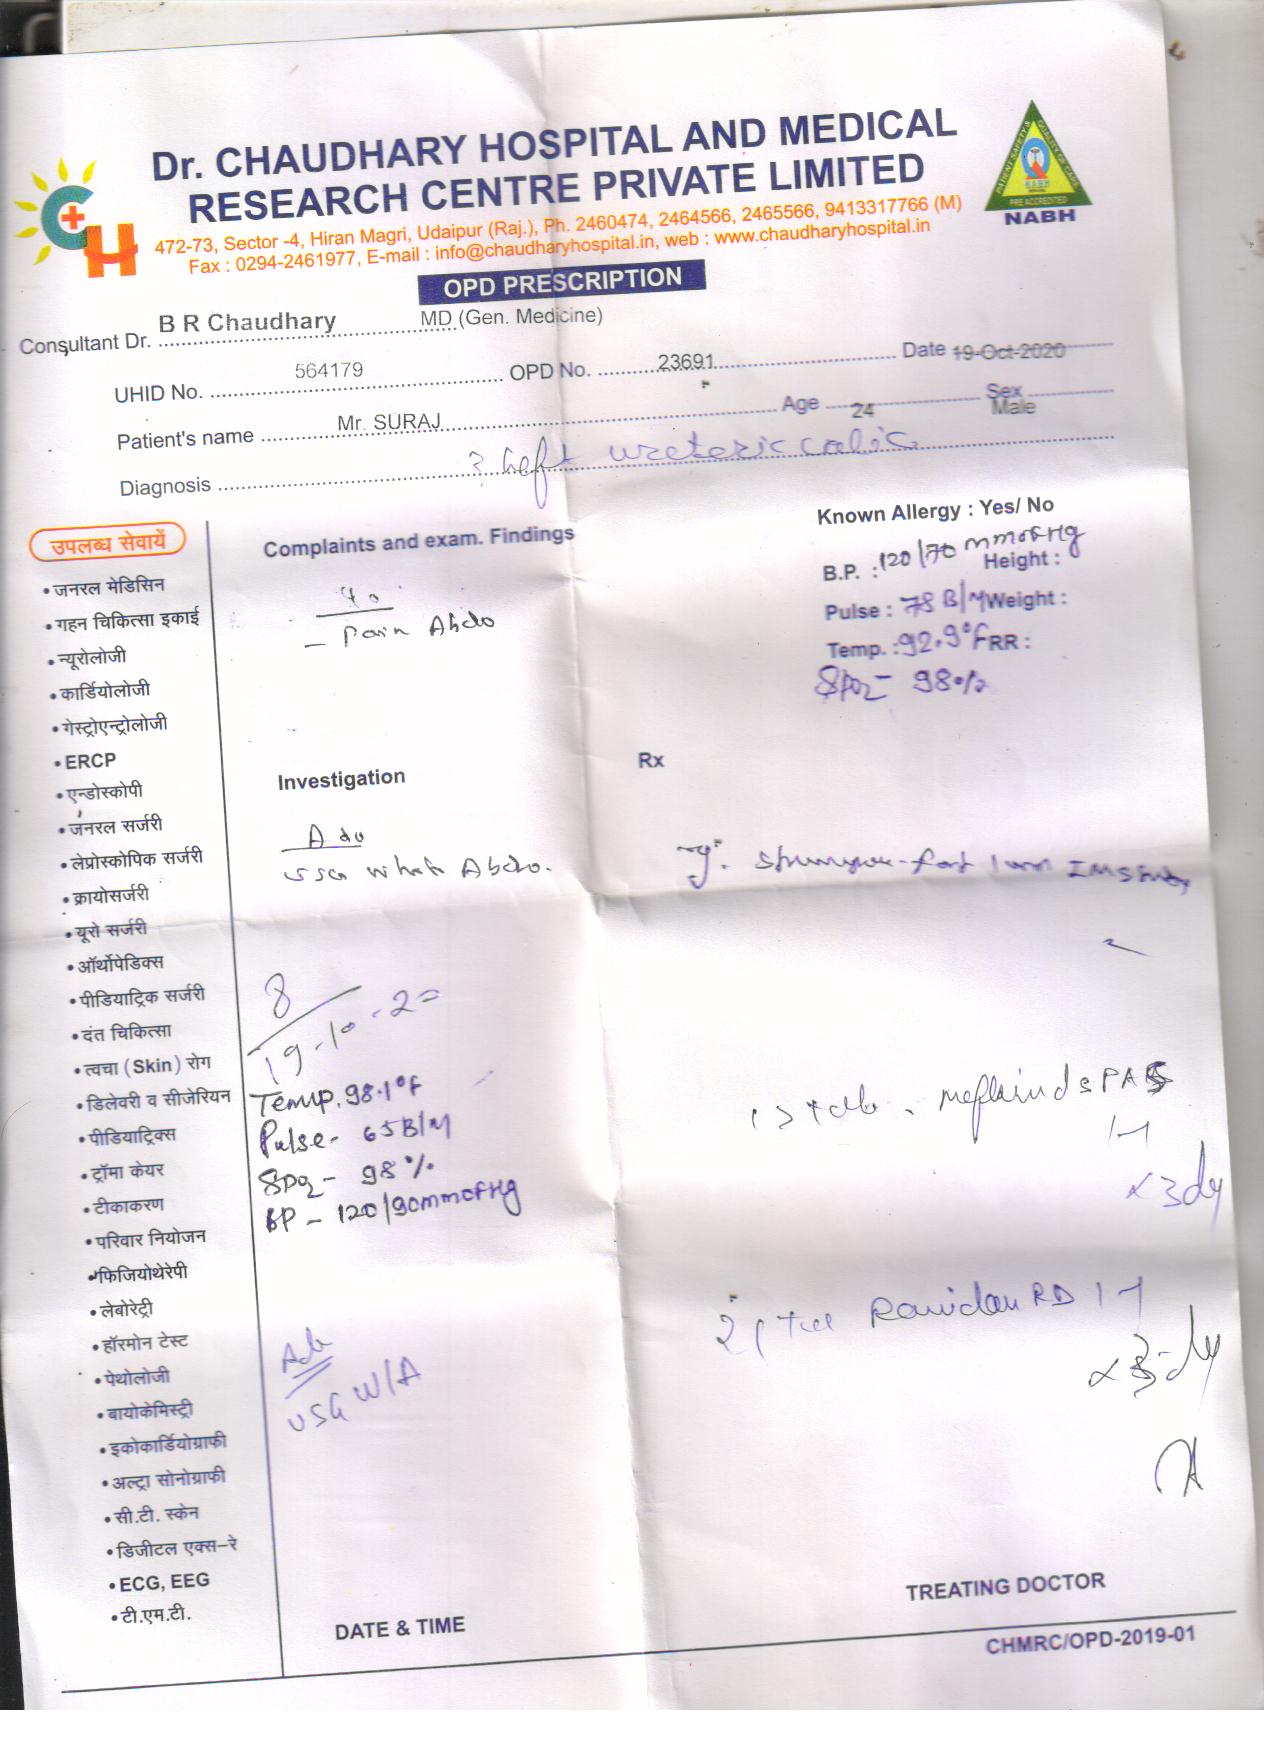 Dr. CHAUDHARY HOSPITAL AND MEDICAL
RESEARCH CENTRE PRIVATE LIMITED
472-73, Sector -4, Hiran Magri, Udaipur (Raj.), Ph. 2460474, 2464566, 2465566, 9413317766 (M)
Fax : 0294-2461977, E-mail : info@chaudharyhospital.in, web : www.chaudharyhospital.in
PRE ACCREDITED
NABH
OPD PRESCRIPTION
Consultant Dr. B R Chaudhary MD (Gen. Medicine)
UHID No. 564179 OPD No. 23691 Date 19-Oct-2020
Patient's name Mr. SURAJ Age 24 Sex Male
Diagnosis ? Left ureteric colic
उपलब्ध सेवायें
• जनरल मेडिसिन
• गहन चिकित्सा इकाई
• न्यूरोलोजी
• कार्डियोलोजी
• गेस्ट्रोएन्ट्रोलोजी
• ERCP
• एन्डोस्कोपी
• जनरल सर्जरी
• लेप्रोस्कोपिक सर्जरी
• क्रायोसर्जरी
• यूरो सर्जरी
• ऑर्थोपेडिक्स
• पीडियाट्रिक सर्जरी
• दंत चिकित्सा
• त्वचा (Skin) रोग
• डिलेवरी व सीजेरियन
• पीडियाट्रिक्स
• ट्रॉमा केयर
• टीकाकरण
• परिवार नियोजन
• फिजियोथेरेपी
• लेबोरेट्री
• हॉरमोन टेस्ट
• पेथोलोजी
• बायोकेमिस्ट्री
• इकोकार्डियोग्राफी
• अल्ट्रा सोनोग्राफी
• सी.टी. स्केन
• डिजीटल एक्स-रे
• ECG, EEG
• टी.एम.टी.
Complaints and exam. Findings
- Pain Abdo
Known Allergy : Yes/ No
B.P. : 120/70 mmofHg Height :
Pulse : 78 B/M Weight :
Temp. : 92.9°F RR :
SPO2 - 98%
Investigation
Adv
USG Whole Abdo.
8
19-10-20
Temp. 98.1°F
Pulse- 65 B/M
SPO2 - 98%
BP - 120/90mmofHg
Adv
USG W/A
Rx
1) Tab. meftaind SPAS
1-1
x 3 dy
2) RD 1-1
x 3 dy
DATE & TIME
TREATING DOCTOR
CHMRC/OPD-2019-01